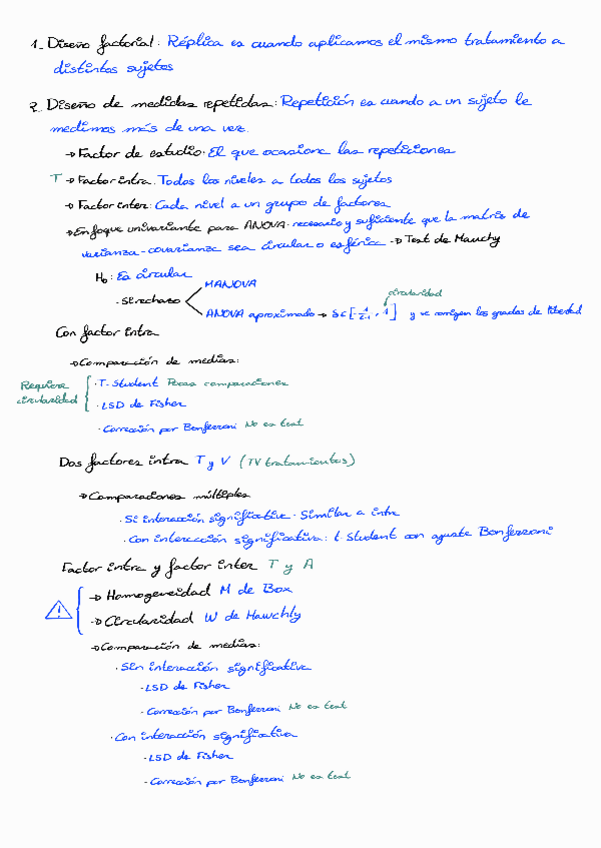 1_ Diseño factorial: Réplica es cuando aplicamos el mismo tratamiento a
distintos sujetos
2_ Diseño de medidas repetidas: Repetición es cuando a un sujeto le
medimos más de una vez.
→ Factor de estudio: El que ocasiona las repeticiones
T → Factor intra: Todos los niveles a todos los sujetos
→ Factor inter: Cada nivel a un grupo de factores
→ Enfoque univariante para ANOVA: necesario y suficiente que la matriz de
varianza-covarianza sea circular o esférica → Test de Mauchy
H₀: Es circular
circularidad
· Si rechazo < MANOVA
ANOVA aproximado → 1] y se corrigen los grados de libertad
Con factor intra
→ Comparación de medias:
Requiere circularidad { · T-Student Pocas comparaciones
· LSD de Fisher
· Corrección por Bonferroni No es test
Dos factores intra T y V (TV tratamientos)
→ Comparaciones múltiples
· Si interacción significativa · Similar a intra
· Con interacción significativa: t-Student con ajuste Bonferroni
Factor intra y factor inter T y A
⚠ { → Homogeneidad M de Box
→ Circularidad W de Mauchly
→ Comparación de medias:
· Sin interacción significativa
· LSD de Fisher
· Corrección por Bonferroni No es test
· Con interacción significativa
· LSD de Fisher
· Corrección por Bonferroni No es test